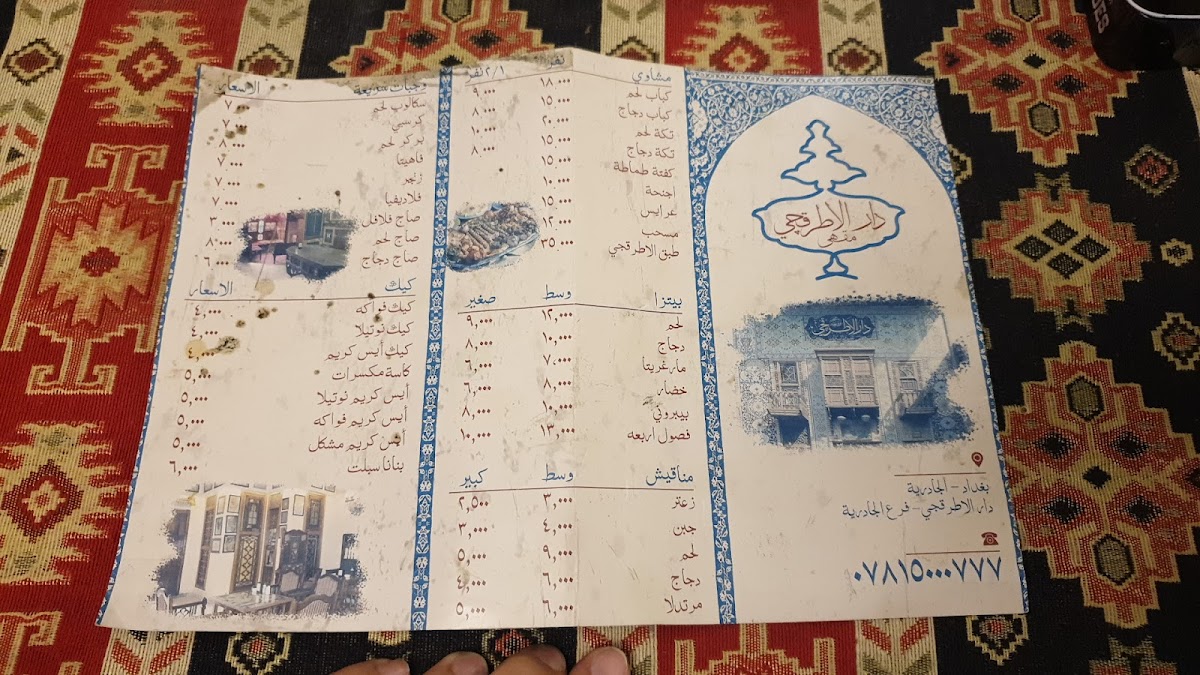 دار الاطرقجي
مقهى
دار الاطرقجي
بغداد - الجادرية
دار الاطرقجي - فرع الجادرية
٠٧٨١٥٠٠٠٧٧٧
مشاوي نفر ١/٢ نفر
كباب لحم ١٨٠٠٠ ٩٠٠٠
كباب دجاج ١٥٠٠٠ ٨٠٠٠
تكة لحم ٢٠٠٠٠ ١٠٠٠٠
تكة دجاج ١٥٠٠٠ ٨٠٠٠
كفتة طماطة ١٥٠٠٠
اجنحة ١٠٠٠٠
عرايس ١٥٠٠٠
مسحب ١٢٠٠٠
طبق الاطرقجي ٣٥٠٠٠
بيتزا وسط صغير
لحم ١٢,٠٠٠ ٩,٠٠٠
دجاج ١٠,٠٠٠ ٨,٠٠٠
مارغريتا ٧,٠٠٠ ٦,٠٠٠
خضار ٨,٠٠٠ ٦,٠٠٠
بيبروني ١٠,٠٠٠ ٨,٠٠٠
فصول اربعه ١٣,٠٠٠ ١٠,٠٠٠
مناقيش وسط كبير
زعتر ٣,٠٠٠ ٢,٥٠٠
جبن ٤,٠٠٠ ٣,٠٠٠
لحم ٩,٠٠٠ ٥,٠٠٠
دجاج ٦,٠٠٠ ٤,٠٠٠
مرتدلا ٦,٠٠٠ ٥,٠٠٠
وجبات سريعة الاسعار
سكالوب لحم ٧٠٠٠
كرسبي
بركر لحم ٨٠٠٠
فاهيتا ٧٠٠٠
زنجر ٧٠٠٠
فلاديفيا ٧٠٠٠
صاج فلافل ٣٠٠٠
صاج لحم ٨٠٠٠
صاج دجاج ٦٠٠٠
كيك الاسعار
كيك فواكه ٤,٠٠٠
كيك نوتيلا ٤,٠٠٠
كيك أيس كريم ٤,٠٠٠
كاسة مكسرات ٥,٠٠٠
أيس كريم نوتيلا ٥,٠٠٠
أيس كريم فواكه ٥,٠٠٠
أيس كريم مشكل ٥,٠٠٠
بنانا سبلت ٦,٠٠٠